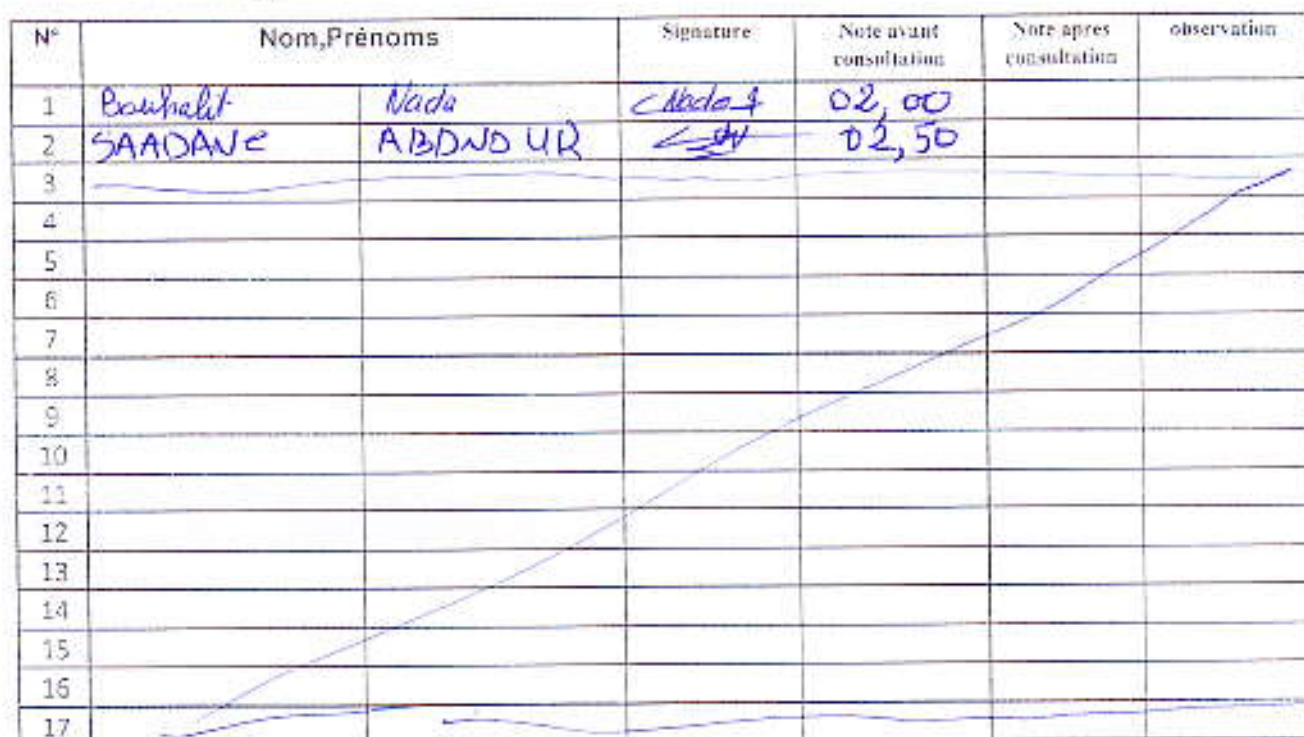 N° Nom,Prénoms Signature Note avant consultation Note apres consultation observation
1 Bouhalit Nada Nada 02,00
2 SAADANE ABDNOUR 02,50
3
4
5
6
7
8
9
10
11
12
13
14
15
16
17